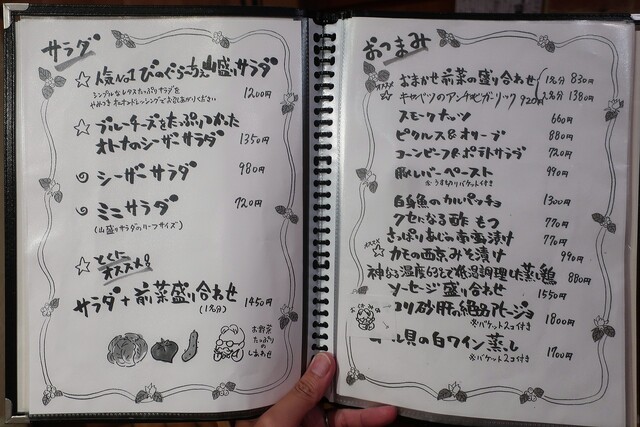 サラダ
☆ 人気No1 びのぐらっちぇ山盛りサラダ
シンプルなレタスたっぷりサラダを
1200円
☆ ブルーチーズをたっぷりつかった
オトナのシーザーサラダ 1350円
シーザーサラダ 980円
ミニサラダ 720円
(山盛りサラダのハーフサイズ)
☆ とくにオススメ!
サラダ+前菜盛り合わせ 1450円
(1名分)
お野菜
たっぷり
の
しあわせ
おつまみ
おまかせ前菜の盛り合わせ 1名分 830円
2名分 1380円
オススメ
☆ キャベツのアンチョビガーリック 920円
スモークナッツ 660円
ピクルス&オリーブ 880円
コーンビーフ&ポテトサラダ 720円
豚レバーペースト 990円
※うす切りバケット付き
白身魚のカルパッチョ 1300円
クセになる酢もつ 770円
さっぱりあじの南蛮漬け 770円
オススメ
☆ カモの西京みそ漬け 990円
神なる温度63℃で低温調理した蒸し鶏 880円
ソーセージ盛り合わせ 1550円
砂肝の絶品アヒージョ 1800円
※バケット2コ付き
貝の白ワイン蒸し 1700円
※バケット2コ付き